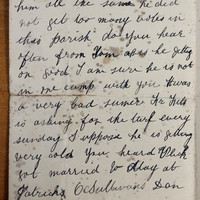 him all the same he did
not get too many votes in
this parish do you hear
often from Tom is he getting
on good I am sure he is not
in one camp with you it was
a very bad sumer
is asking for the turf every
sunday I suppose he is getting
very cold you heard
got married to May at
Patricks O Sullivans Dan